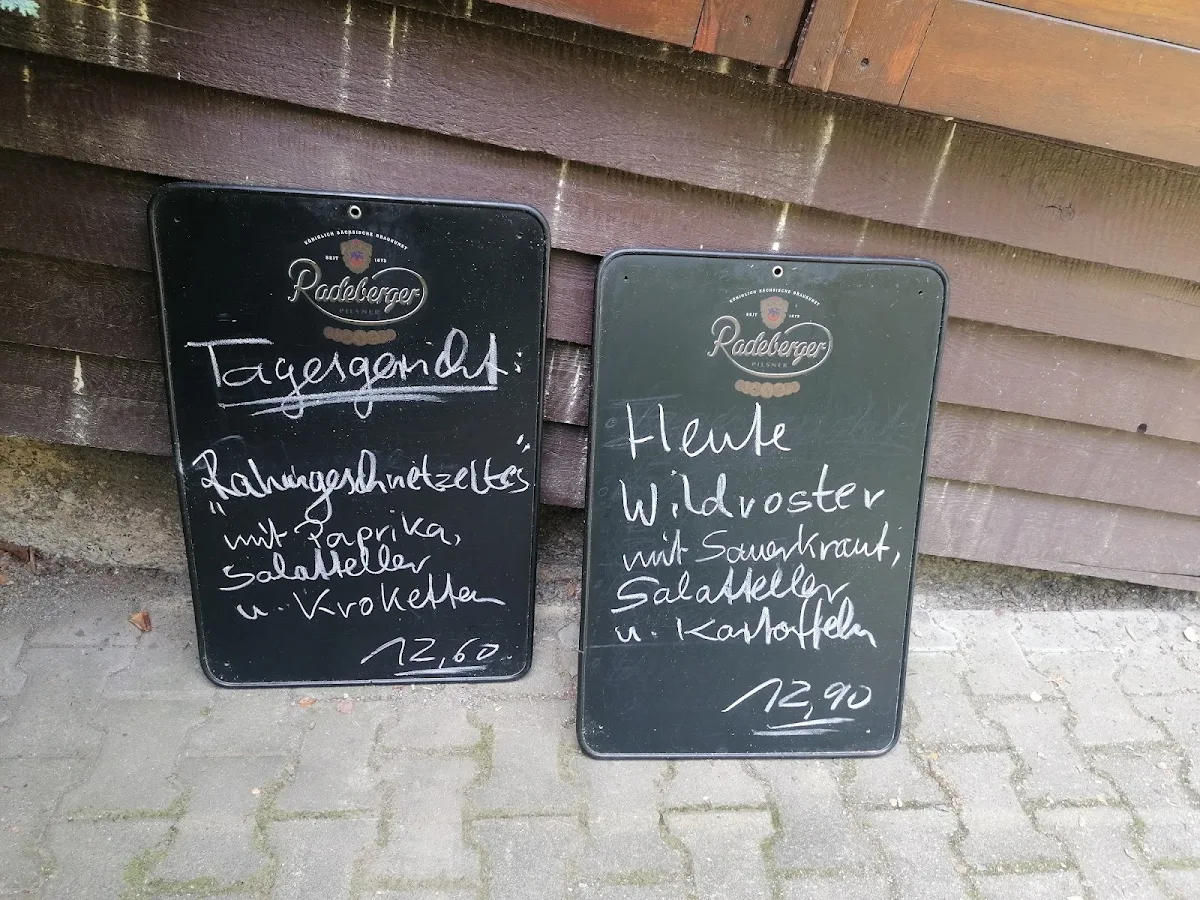 KÖNIGLICH SÄCHSISCHE BRAUKUNST
SEIT 1872
Radeberger
PILSNER
Tagesgericht:
"Rahmgeschnetzeltes"
mit Paprika,
Salatteller
u. Kroketten
12,60
KÖNIGLICH SÄCHSISCHE BRAUKUNST
SEIT 1872
Radeberger
PILSNER
Heute
Wildroster
mit Sauerkraut,
Salatteller
u. Kartoffeln
12,90